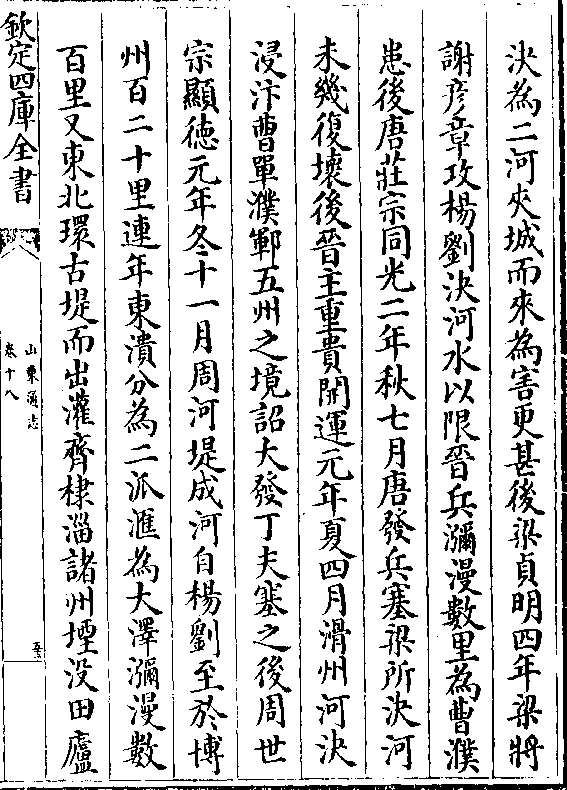 決為二河夾城而來為害更甚後梁貞明四年梁將
謝彦章攻楊劉決河水以限晉兵瀰漫數里為曹濮
患後唐莊宗同光二年秋七月唐發兵塞梁所決河
未幾復壞後晉主重貴開運元年夏四月滑州河決
浸汴曹單濮鄆五州之境詔大發丁夫塞之後周世
宗顯徳元年冬十一月周河堤成河自楊劉至於博
州百二十里連年東潰分為二派滙為大澤瀰漫數
百里又東北環古堤而出灌齊棣淄諸州堙没田廬
欽定四庫全書
山東通志
卷十八